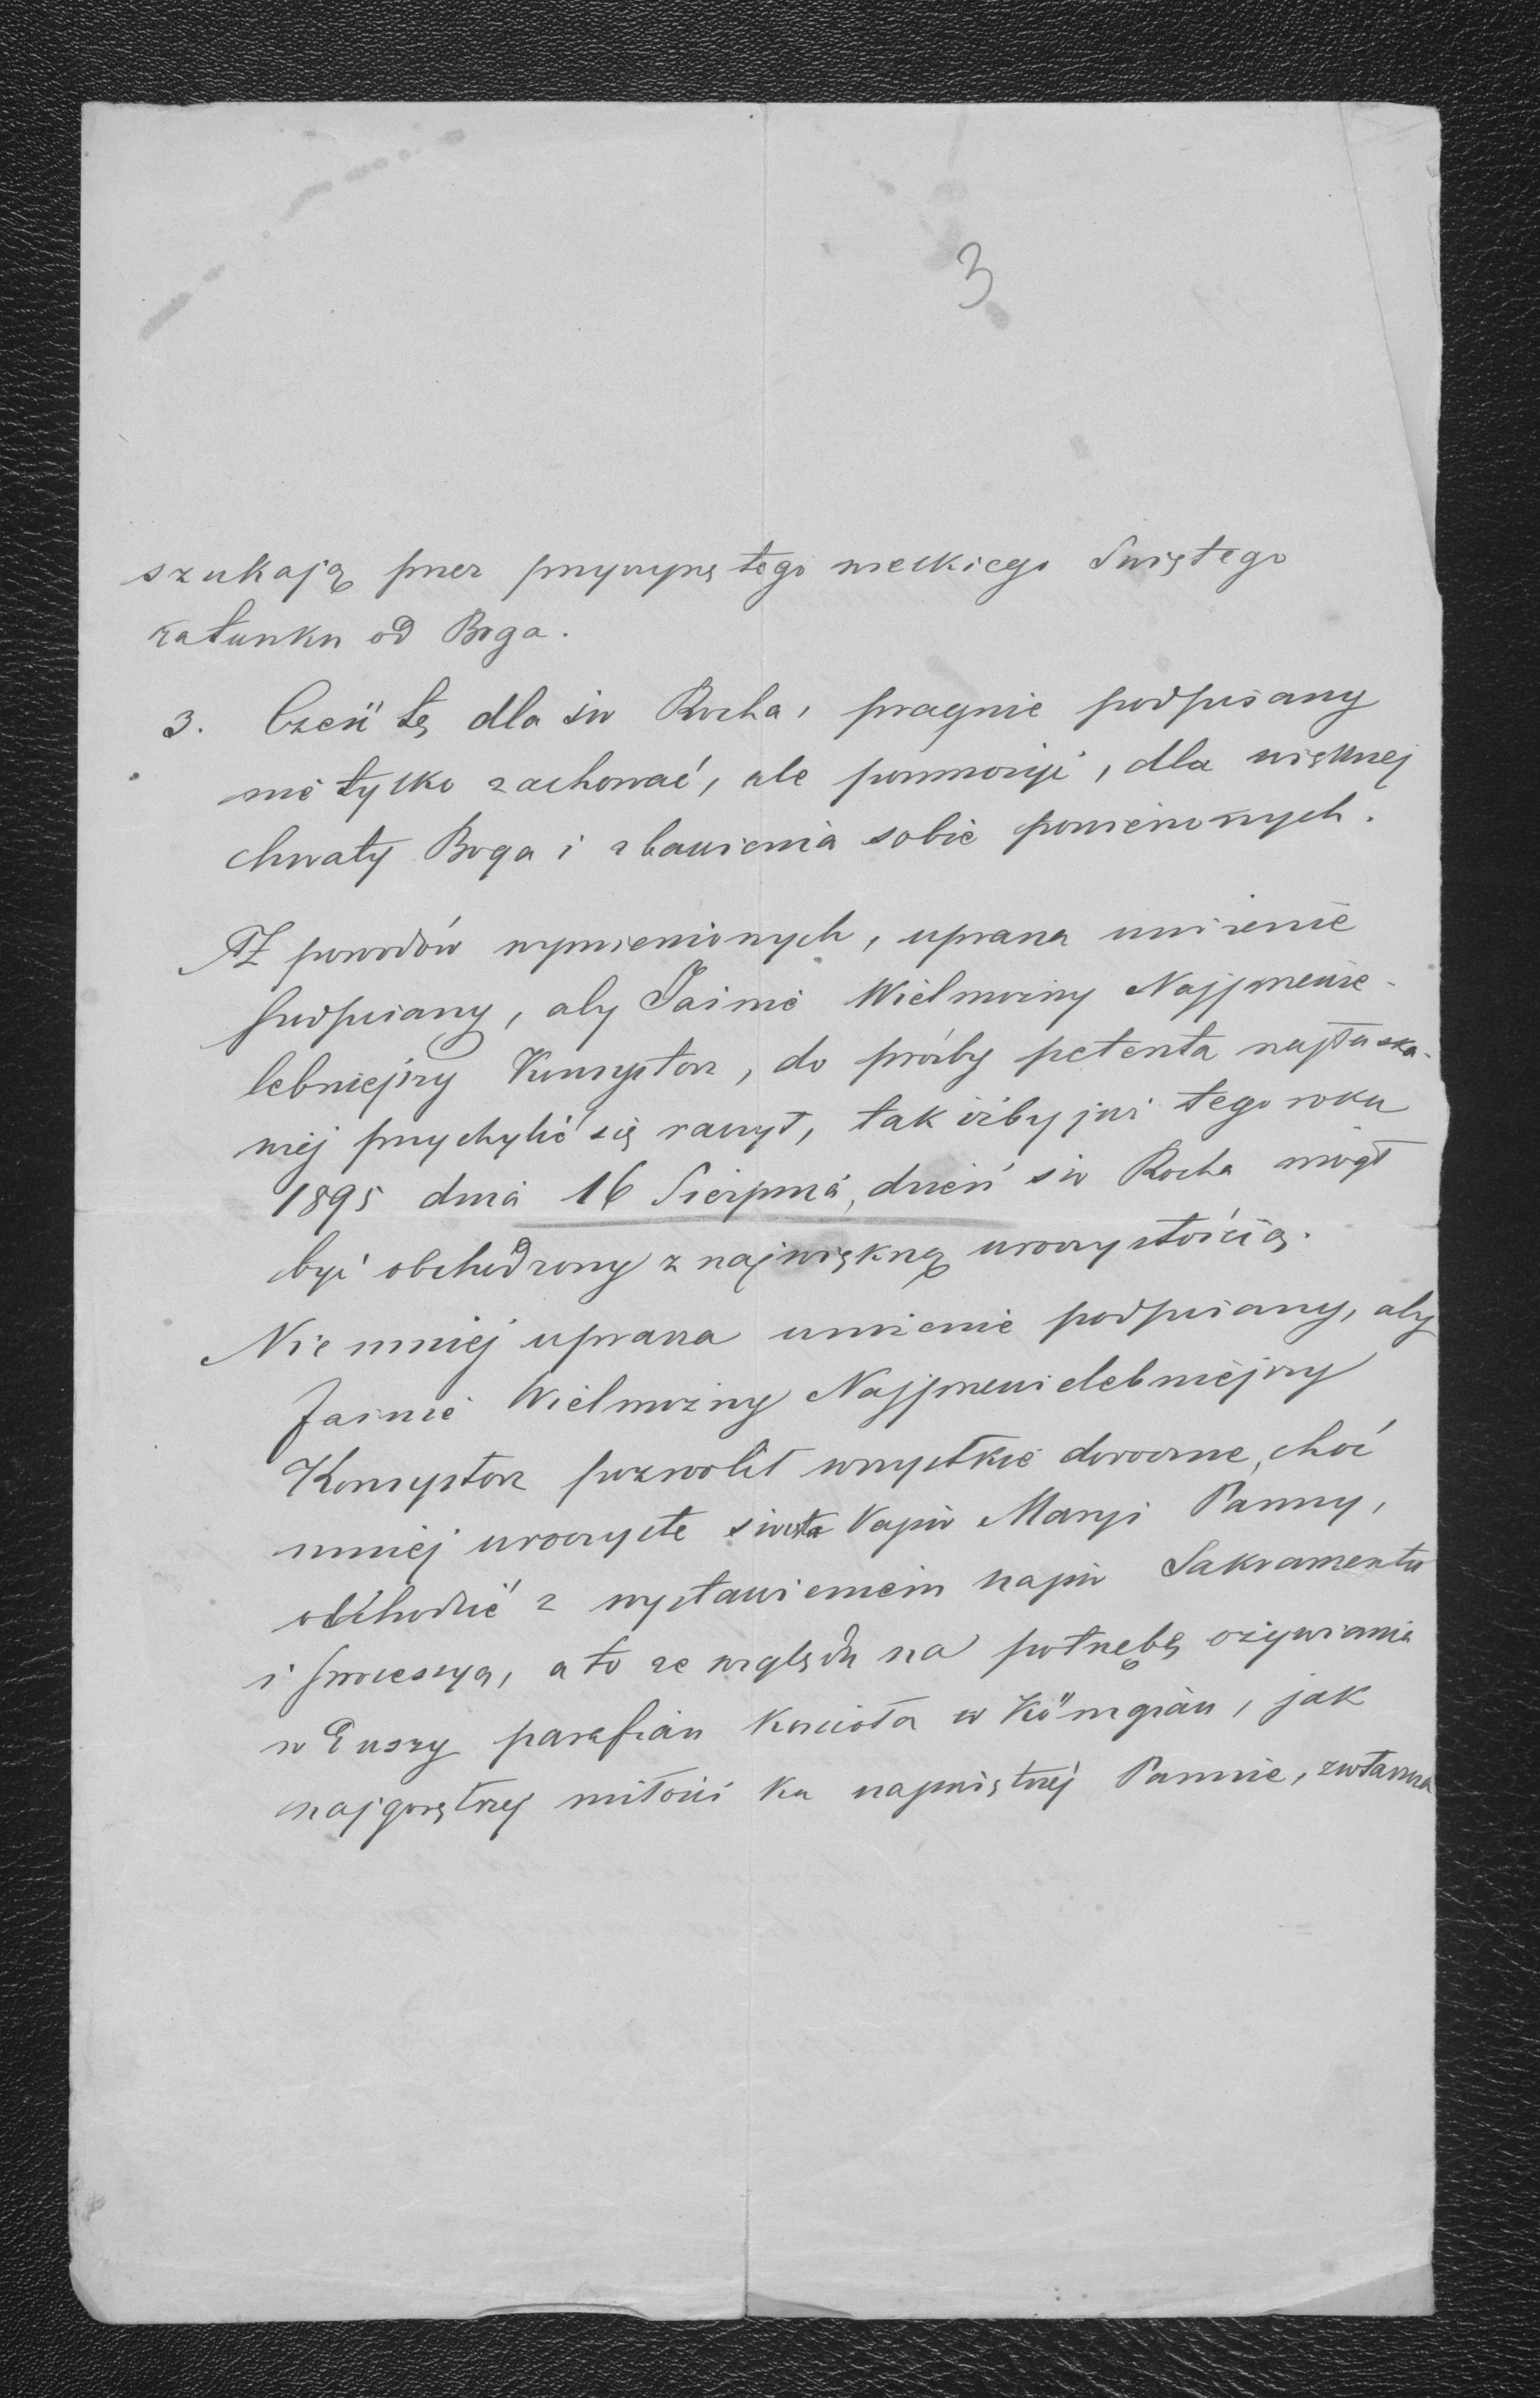 3
szukają przez przyczynę tego wielkiego Świętego
ratunku od Boga.
3. Cześć tę dla św Rocha, pragnie podpisany
nie tylko zachować, ale pomnożyć, dla większej
chwały Boga i zbawienia sobie powierzonych.
Z powodów wymienionych, uprasza uniżenie
podpisany, aby Jaśnie Wielmożny Najprzewie-
lebniejszy Konsystorz, do prośby petenta najłaska-
wiej przychylić się raczył, tak iżby już tego roku
1895 dnia 16 Sierpnia, dzień św Rocha mógł
być obchodzony z największą uroczystością.
Nie mniej uprasza uniżenie podpisany, aby
Jaśnie Wielmożny Najprzewielebniejszy
Konsystorz pozwolił wszystkie doroczne, choć
mniej uroczyste święta Najśw Maryi Panny,
obchodzić z wystawieniem najśw Sakramentu
i processyą, a to ze względu na potrzebę ożywiania
w duszy parafian kościoła w, jak
najgorętszej miłości ku najświętszej Pannie, zwłaszcza